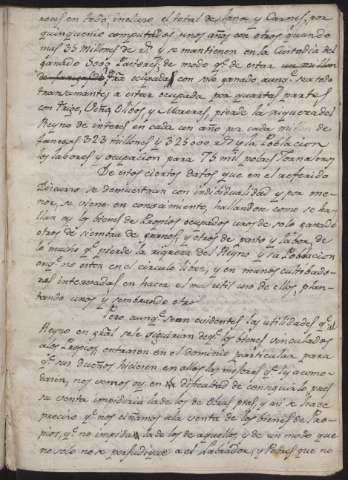 reses en todo, incluso el total de lanas y Carnes, por
quinquenio computados unos años con otros quando
mas 35 Millones de rs. y se mantienen en la Custodia del
ganado Pastores, de modo qe. de estar
ocupadas con solo ganado aunqe. sea todo
transumantes a estar ocupada por quartas partes
con Trigo, Viña Olibos y Maderas, pierde la riqueza del
Reyno de interes en cada un año por cada millon de
fanegas 323 millones y 325000 rs. y la Poblacion
las labores y ocupacion para 75 mil pobres Jornaleros
De estos ciertos datos que en el referido
Discurso se demuestran con individualidad y por me-
nor, se viene en conocimiento, hallandose como se ha-
llan oy los bienes de Propios ocupados unos de solo ganado
otros de siembra de granos, y otros de pasto y labor, de
lo mucho qe. pierde la riqueza del Reyno y la Poblacion
en qe. no esten en el circulo libre, y en manos cultivado-
ras interesadas en hacer el mas util uso de ellos, plan-
tando unos y sembrando otros
Pero aunqe. sean evidentes las utilidades qe. al
Reyno en gral. se le seguirian de qe. los bienes vinculados
a los Propios, entraran en el dominio particular para
qe. sus dueños hicieran en ellos las mejoras qe. les acomo-
daren, nos vemos oy en dificultad de conseguirlo pues
su venta impediria la de los de Obras pias, y asi se hace
preciso qe. nos ciñamos a la venta de los bienes de Pro-
pios, qe. no impidan la de los de aquellos, y de un modo que
no solo no se perjudique a el Labrador, y Pobres que no